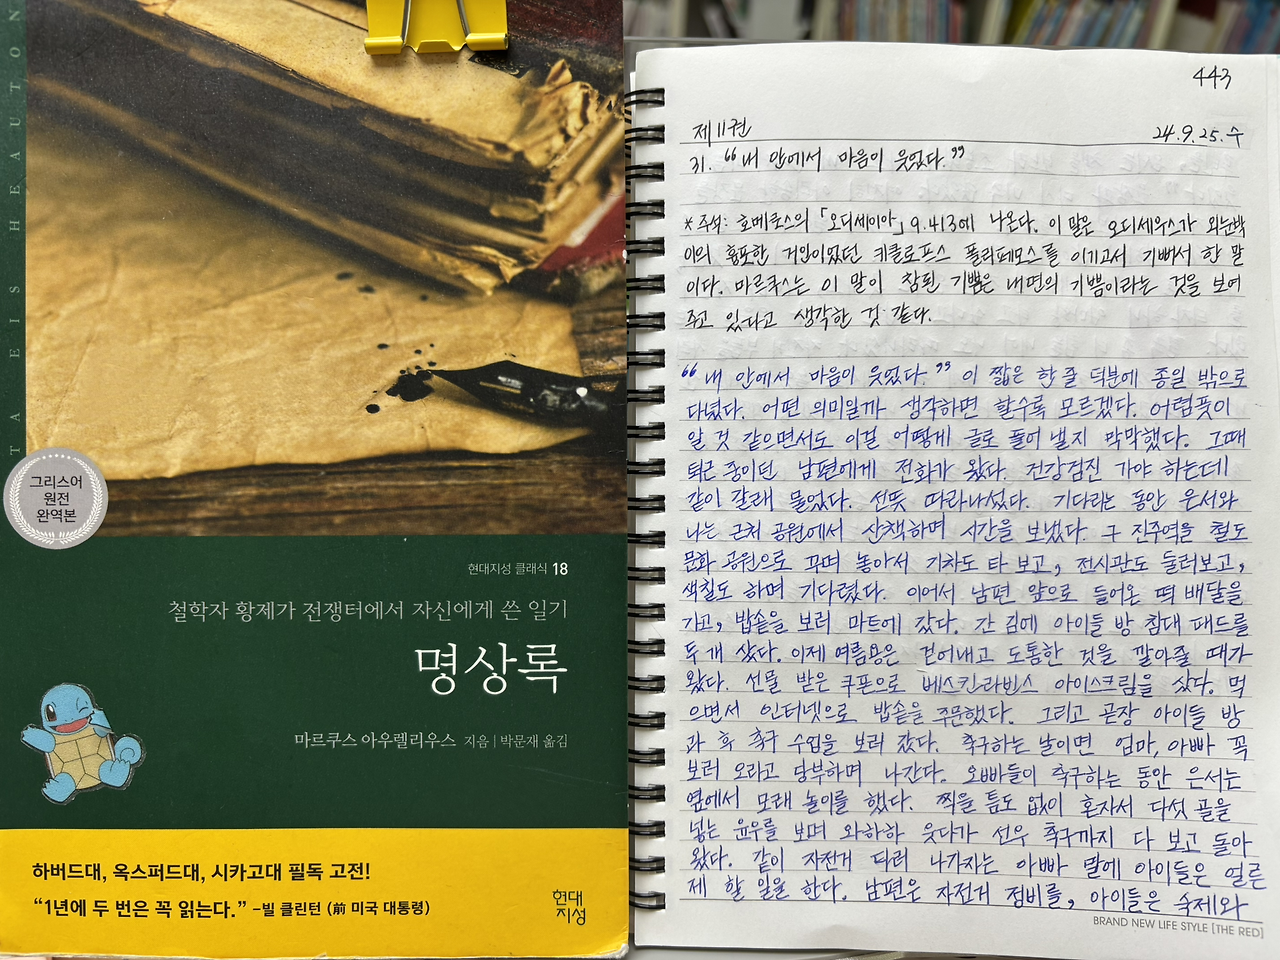 TA EIS HEAUTON
그리스어
원전
완역본
현대지성 클래식 18
철학자 황제가 전쟁터에서 자신에게 쓴 일기
명상록
마르쿠스 아우렐리우스 지음 | 박문재 옮김
하버드대, 옥스퍼드대, 시카고대 필독 고전!
“1년에 두 번은 꼭 읽는다.” –빌 클린턴 (前 미국 대통령)
현대
지성
443
제11권
24.9.25.수
31. “내 안에서 마음이 웃었다.”
*주석: 호메로스의 「오디세이아」 9.413에 나온다. 이 말은 오디세우스가 외눈박
이의 흉포한 거인이었던 키클로프스 폴리페모스를 이기고서 기뻐서 한 말
이다. 마르쿠스는 이 말이 참된 기쁨은 내면의 기쁨이라는 것을 보여
주고 있다고 생각한 것 같다.
“내 안에서 마음이 웃었다.” 이 짧은 한 줄 덕분에 종일 밖으로
다녔다. 어떤 의미일까 생각하면 할수록 모르겠다. 어렴풋이
알 것 같으면서도 이걸 어떻게 글로 풀어 낼지 막막했다. 그때
퇴근 중이던 남편에게 전화가 왔다. 건강검진 가야 하는데
같이 갈래 물었다. 선뜻 따라나섰다. 기다리는 동안 은서와
나는 근처 공원에서 산책하며 시간을 보냈다. 구 진주역을 철도
문화 공원으로 꾸며 놓아서 기차도 타 보고, 전시관도 둘러보고,
색칠도 하며 기다렸다. 이어서 남편 앞으로 들어온 떡 배달을
가고, 밥솥을 보러 마트에 갔다. 간 김에 아이들 방 침대 패드를
두 개 샀다. 이제 여름용은 걷어내고 도톰한 것을 깔아줄 때가
왔다. 선물 받은 쿠폰으로 베스킨라빈스 아이스크림을 샀다. 먹
으면서 인터넷으로 밥솥을 주문했다. 그리고 곧장 아이들 방
과 후 축구 수업을 보러 갔다. 축구하는 날이면 엄마, 아빠 꼭
보러 오라고 당부하며 나간다. 오빠들이 축구하는 동안 은서는
옆에서 모래 놀이를 했다. 찍을 틈도 없이 혼자서 다섯 골을
넣는 윤우를 보며 와하하 웃다가 선우 축구까지 다 보고 돌아
왔다. 같이 자전거 타러 나가자는 아빠 말에 아이들은 얼른
제 할 일을 한다. 남편은 자전거 정비를, 아이들은 숙제와
BRAND NEW LIFE STYLE [THE RED]